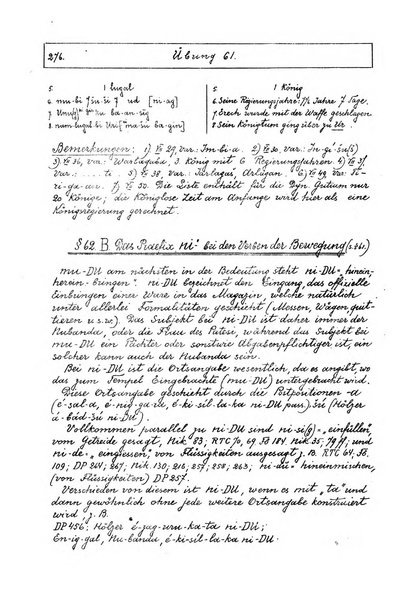 276. Übung 61.
5. 1 lugal
6. mu-bi 7 šu-ši 7 ud [ni-ag]
7. ba-an-sìg
8. nam lugal bi
5. 1 König
6. Seine Regierungsjahre: 7 Jahre 7 Tage.
7. Erech wurde mit der Waffe geschlagen
8. Sein Königtum ging über zu Ur.
Bemerkungen: 1) VII 29, var: Im-bi-a. 2) VII 30, var: In-gi-šu(š)
3) VII 36, var: Warlagaba, 3. König mit 6 Regierungsjahren. 4) VII 37,
var: ..... te. 5) VII 38, var: Jarlagaš, Arlagan. 6) VII 49, var: Ti-
ri-ga-a... 7) VII 50. Die Liste enthält für die Dyn. Gutium nur
20 Könige; die königlose Zeit am Anfange wird hier als eine
Königsregierung gerechnet.
§ 62. B. Das Praefix ni- bei den Verben der Bewegung
mu-DU am nächsten in der Bedeutung steht ni-DU „hinein-
herein-bringen“. ni-DU bezeichnet den Eingang, das offizielle
Einbringen einer Ware in das Magazin, welche natürlich
unter allerlei Formalitäten geschieht (Messen, Wägen, quit-
tieren u.s.w.). Das Subjekt bei ni-DU ist daher immer der
Nubanda, oder die Frau des Patesi, während das Subjekt bei
mu-DU ein Pächter oder sonstwie Abgabenpflichtiger ist; ein
solcher kann auch der Nubanda sein.
Bei ni-DU ist die Ortsangabe wesentlich, da es angibt, wo
das zum Tempel Eingebrachte (mu-DU) untergebracht wird.
Diese Ortsangabe geschieht durch die Postpositionen -a
(é-šal-a, é-nig-ga-ra, é-ki-sil-la-ka ni-DU pass.) šù (Hölzer
á-bád-šù ni-DU).
Vollkommen parallel zu ni-DU sind ni-si(g) = „einfüllen“,
vom Getreide gesagt, Nik 83; RTC 70, 69. Fö 184. Nik 35; 79 ff; und
ni-de = „eingiessen“, von Flüssigkeiten ausgesagt z. B. RTC 64, Fö.
109; DP 264, 267; Nik. 130, 216, 257, 258, 263; ni-du = hineinmischen,
(von Flüssigkeiten) DP 257.
Verschieden von diesem ist ni-DU, wenn es mit „ta“ und
dann gewöhnlich ohne jede weitere Ortsangabe konstruiert
wird; z. B.
DP 456: Hölzer é-zag-uru-ka-ta ni-DU;
En-ig-gal, Nu-banda, é-ki-sil-la-ka ni-DU.